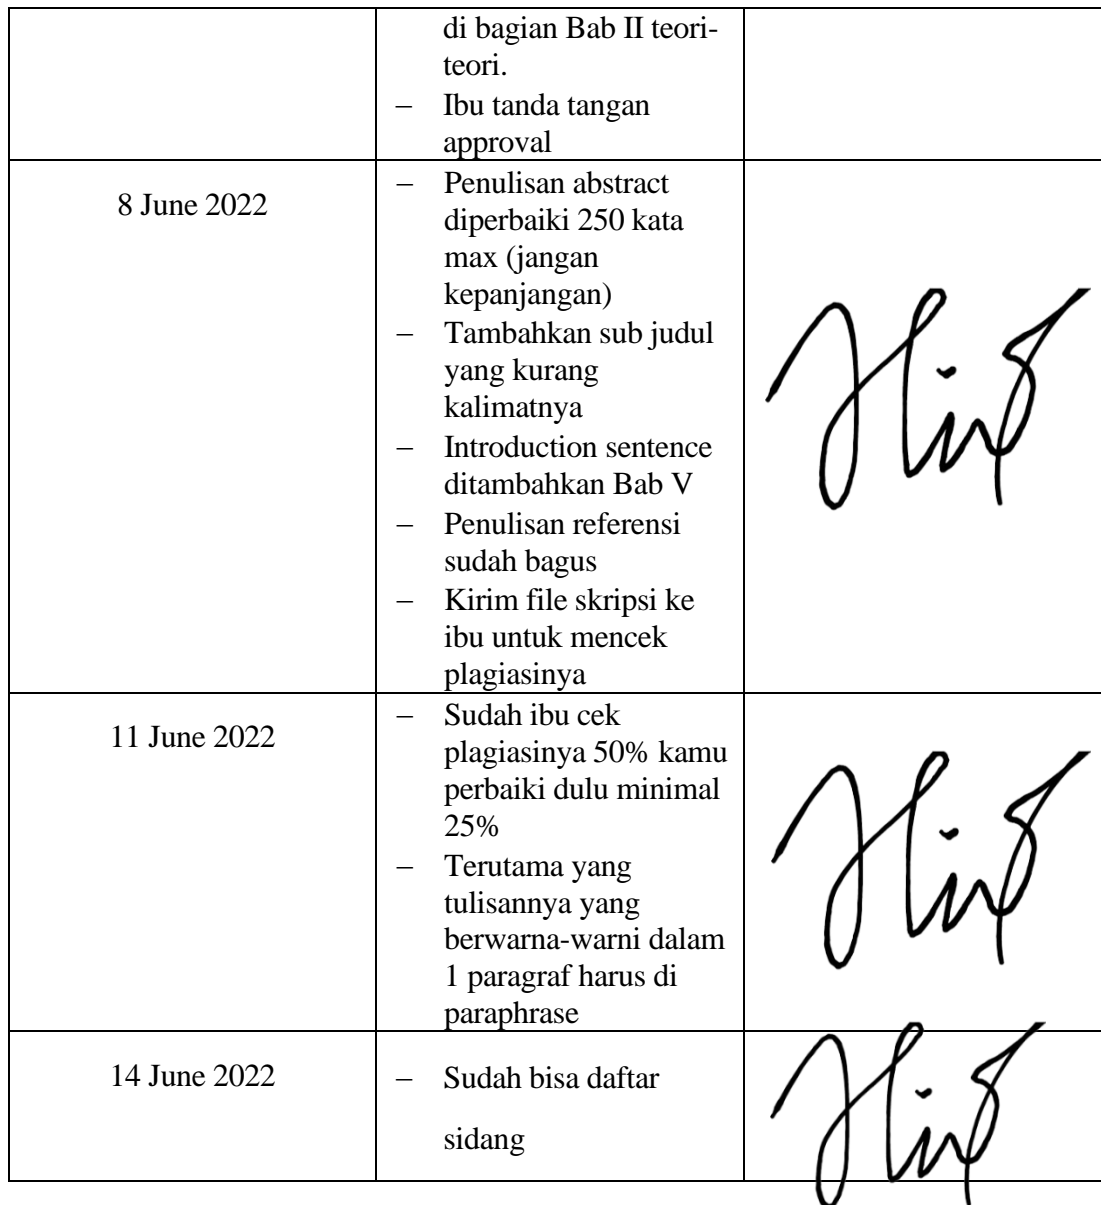 di bagian Bab II teori-
teori.
– Ibu tanda tangan
approval
8 June 2022
– Penulisan abstract
diperbaiki 250 kata
max (jangan
kepanjangan)
– Tambahkan sub judul
yang kurang
kalimatnya
– Introduction sentence
ditambahkan Bab V
– Penulisan referensi
sudah bagus
– Kirim file skripsi ke
ibu untuk mencek
plagiasinya
11 June 2022
– Sudah ibu cek
plagiasinya 50% kamu
perbaiki dulu minimal
25%
– Terutama yang
tulisannya yang
berwarna-warni dalam
1 paragraf harus di
paraphrase
14 June 2022
– Sudah bisa daftar
sidang